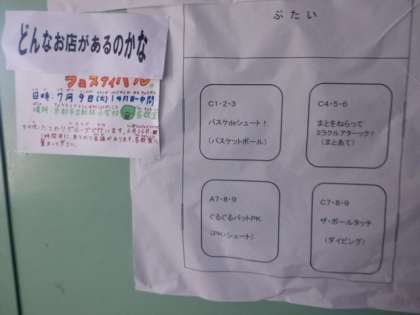 どんなお店があるのかな
フェスティバル
日時:7月9日(火)1時間目〜中間
場所:京都市立
ぶたい
C1・2・3
バスケルシュート!
(バスケットボール)
C4・5・6
まとをねらって
ミラクルアタ−ック!
(まとあて)
A7・8・9
ぐるぐるバットPK
(PK・シュート)
C7・8・9
ザ・ボールタッチ
(ダイビング)